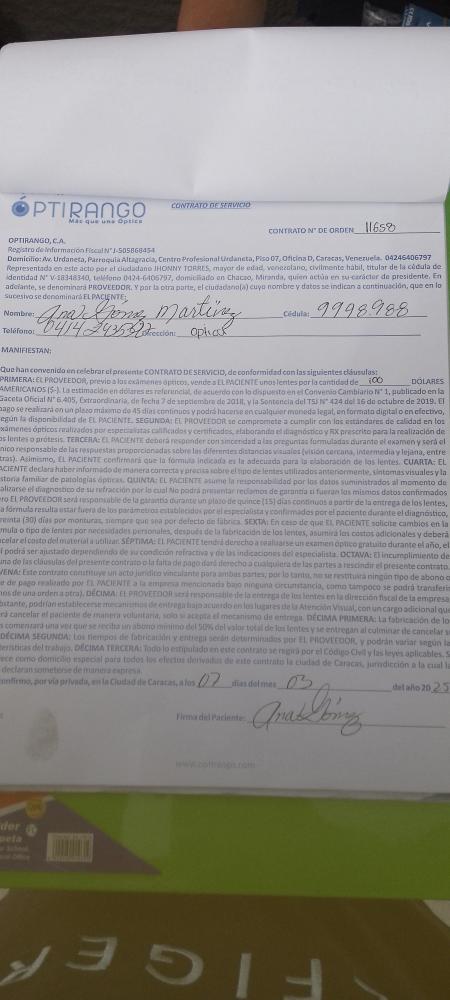 ÓPTIRANGO
Más que una Óptica
CONTRATO DE SERVICIO
CONTRATO N° DE ORDEN 11658
OPTIRANGO, C.A.
Registro de Información Fiscal N° J-505868454
Domicilio: Av. Urdaneta, Parroquia Altagracia, Centro Profesional Urdaneta, Piso 07, Oficina D, Caracas, Venezuela. 04246406797
Representada en este acto por el ciudadano JHONNY TORRES, mayor de edad, venezolano, civilmente hábil, titular de la cédula de
identidad N° V-18348340, teléfono 0424-6406797, domiciliado en Chacao, Miranda, quien actúa en su carácter de presidente. En
adelante, se denominará PROVEEDOR. Y por la otra parte, el ciudadano(a) cuyo nombre y datos se indican a continuación, que en lo
sucesivo se denominará EL PACIENTE:
Nombre: Ana Gómez Martínez Cédula: 9998.988
Teléfono: 0414 Dirección: optica
MANIFIESTAN:
Que han convenido en celebrar el presente CONTRATO DE SERVICIO, de conformidad con las siguientes cláusulas:
PRIMERA: EL PROVEEDOR, previo a los exámenes ópticos, vende a EL PACIENTE unos lentes por la cantidad de 100 DÓLARES
AMERICANOS ($-). La estimación en dólares es referencial, de acuerdo con lo dispuesto en el Convenio Cambiario N° 1, publicado en la
Gaceta Oficial N° 6.405, Extraordinaria, de fecha 7 de septiembre de 2018, y la Sentencia del TSJ N° 424 del 16 de octubre de 2019. El
pago se realizará en un plazo máximo de 45 días continuos y podrá hacerse en cualquier moneda legal, en formato digital o en efectivo,
según la disponibilidad de EL PACIENTE. SEGUNDA: EL PROVEEDOR se compromete a cumplir con los estándares de calidad en los
exámenes ópticos realizados por especialistas calificados y certificados, elaborando el diagnóstico y RX prescrito para la realización de
os lentes o prótesis. TERCERA: EL PACIENTE deberá responder con sinceridad a las preguntas formuladas durante el examen y será el
nico responsable de las respuestas proporcionadas sobre las diferentes distancias visuales (visión cercana, intermedia y lejana, entre
tras). Asimismo, EL PACIENTE confirmará que la fórmula indicada es la adecuada para la elaboración de los lentes. CUARTA: EL
ACIENTE declara haber informado de manera correcta y precisa sobre el tipo de lentes utilizados anteriormente, síntomas visuales y la
storia familiar de patologías ópticas. QUINTA: EL PACIENTE asume la responsabilidad por los datos suministrados al momento de
alizarse el diagnóstico de su refracción por lo cual No podrá presentar reclamos de garantía si fueran los mismos datos confirmados
ero EL PROVEEDOR será responsable de la garantía durante un plazo de quince (15) días continuos a partir de la entrega de los lentes,
a fórmula resulta estar fuera de los parámetros establecidos por el especialista y confirmados por el paciente durante el diagnóstico,
reinta (30) días por monturas, siempre que sea por defecto de fábrica. SEXTA: En caso de que EL PACIENTE solicite cambios en la
mula o tipo de lentes por necesidades personales, después de la fabricación de los lentes, asumirá los costos adicionales y deberá
celar el costo del material a utilizar. SÉPTIMA: EL PACIENTE tendrá derecho a realizarse un examen óptico gratuito durante el año, el
l podrá ser ajustado dependiendo de su condición refractiva y de las indicaciones del especialista. OCTAVA: El incumplimiento de
una de las cláusulas del presente contrato o la falta de pago dará derecho a cualquiera de las partes a rescindir el presente contrato.
VENA: Este contrato constituye un acto jurídico vinculante para ambas partes; por lo tanto, no se restituirá ningún tipo de abono o
e de pago realizado por EL PACIENTE a la empresa mencionada bajo ninguna circunstancia, como tampoco se podrá transferir
nos de una orden a otra). DÉCIMA: EL PROVEEDOR será responsable de la entrega de los lentes en la dirección fiscal de la empresa
obstante, podrían establecerse mecanismos de entrega bajo acuerdo en los lugares de la Atención Visual, con un cargo adicional que
rá cancelar el paciente de manera voluntaria, solo si acepta el mecanismo de entrega. DÉCIMA PRIMERA: La fabricación de lo
s comenzará una vez que se reciba un abono mínimo del 50% del valor total de los lentes y se entregan al culminar de cancelar s
DÉCIMA SEGUNDA: Los tiempos de fabricación y entrega serán determinados por EL PROVEEDOR, y podrán variar según la
terísticas del trabajo. DÉCIMA TERCERA: Todo lo estipulado en este contrato se regirá por el Código Civil y las leyes aplicables. S
ece como domicilio especial para todos los efectos derivados de este contrato la ciudad de Caracas, jurisdicción a la cual la
declaran someterse de manera expresa.
onfirmo, por vía privada, en la Ciudad de Caracas, a los 07 días del mes 03 del año 2025
Firma del Paciente: Ana Gómez
der
peta
School
Office
FIGER